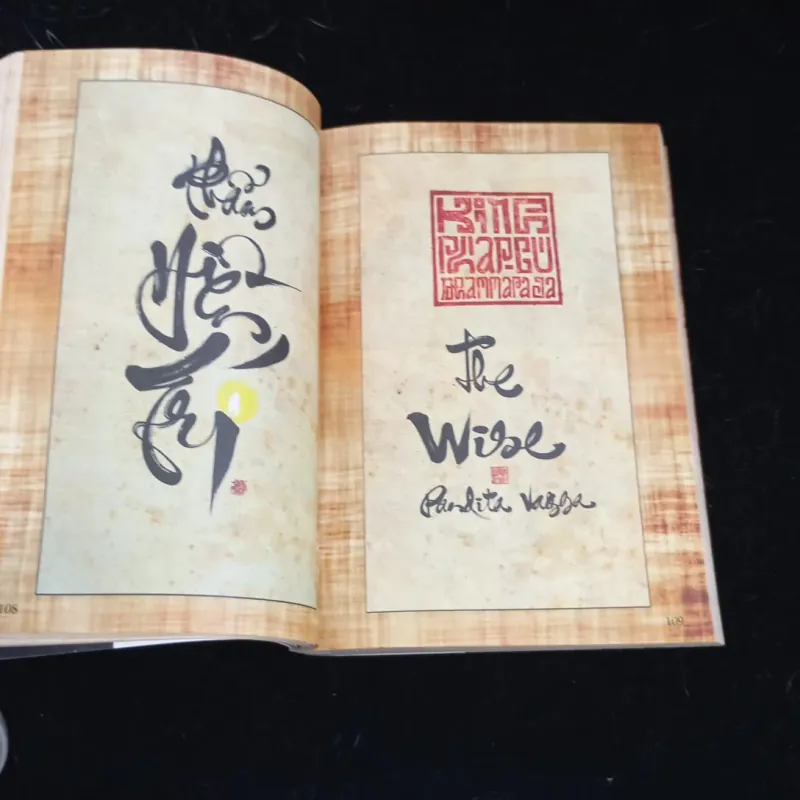 Phẩm
Hiền
Trí
108
KiNH
PHAP.CU
DHAMMAPADA
The
Wise
Pandita Vagga
109